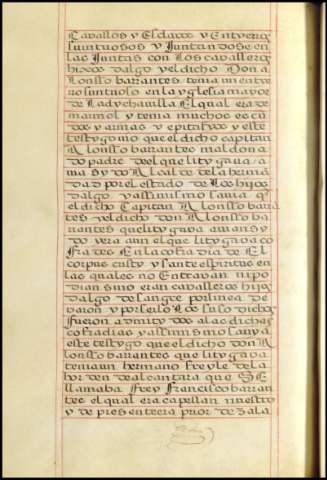 Cavallos y Esclavos y Entierros
suintuosos y Juntandose en
las Juntas con Los cavalleros
hijos dalgo y el dicho Don a
lonsso barrantes tenia un entie
rro suntuoso en la yglesia mayor
de la dycha villa El qual era de
marmol y tenia muchos escu
dos y armas y epitafios y este
testygo vio que el dicho capitan
Alonsso barrantes maldona
do padre del que lityga va a
via sydo Alcalde de la herma
dad por el estado de Los hijos
dalgo y assimismo savia q
el dicho Capitan Alonsso barra
tes y el dicho don Alonsso ba
rrantes que lityga va avian sy
do y era aun el que lityga va co
frades En la cofradia de El
corpus cristy y sante espiritus en
las quales no Entravan ni po
dian sino eran cavalleros hijos
dalgo de sangre por linea de
varon y por serlo Los suso dichos
fueron admitydos a las dichas
cofradias y assimismo savia
este testygo que el dicho don A
lonsso barrantes que lityga va
tenia un hermano freyle de la
horden de alcantara que SE
llamaba frey francisco barran
tes el qual era capellan nuestro
y de presente era prior de Zala